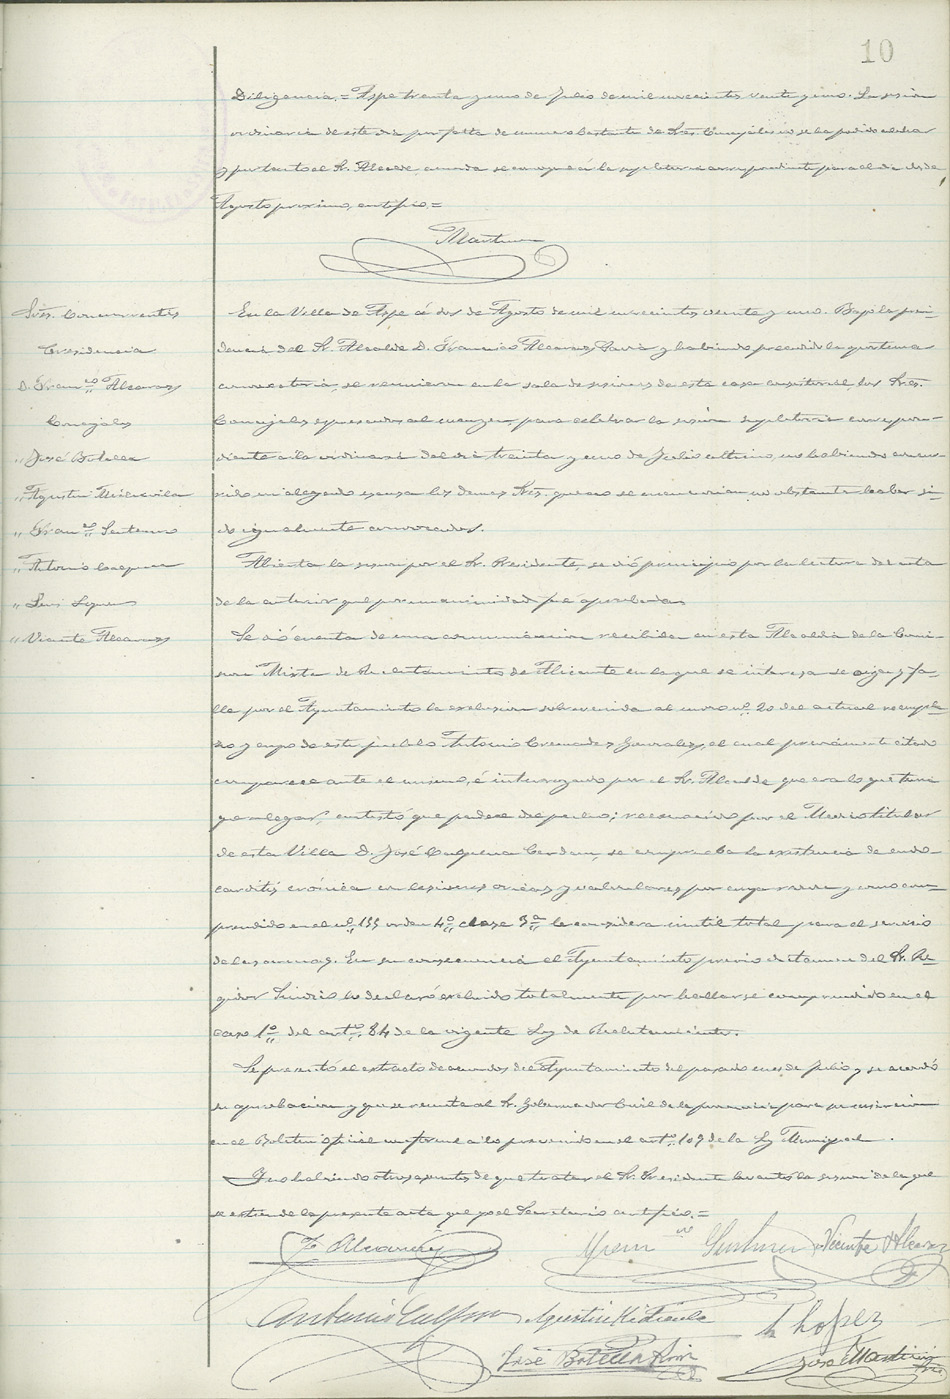 10
Diligencia.= Aspe treinta y uno de Julio de mil novecientos veinte y uno. La sesión
ordinaria de este día por falta de número bastante de Sres. Concejales no se ha podido celebrar
y por tanto el Sr. Alcalde, acuerda se convoque á la supletoria correspondiente para el día dos de
Agosto próximo, certifico.=
Martínez
Sres. Concurrentes
Presidencia
D. Franco Alcaraz
Concejales
" José Botella
" Agustín Mira
" Franco
" Antonio Calpena
" Luis
" Vicente Alcaraz
En la Villa de Aspe á dos de Agosto de mil novecientos veinte y uno. Bajo la presi-
dencia del Sr. Alcalde D. Francisco Alcaraz y habiendo precedido la oportuna
convocatoria, se reunieron en la sala de sesiones de esta casa consistorial, los Sres.
Concejales expresados al margen, para celebrar la sesión supletoria correspon-
diente a la ordinaria del día treinta y uno de Julio último, no habiendo concu-
rrido ni alegado excusa los demás Sres. que no se mencionan, no obstante haber si-
do igualmente convocados.
Abierta la sesión por el Sr. Presidente, se dió principio por la lectura del acta
de la anterior que por unanimidad fué aprobada.
Se dió cuenta de una comunicación recibida en esta Alcaldía de la Comi-
sión Mixta de Reclutamiento de Alicante en la que se interesa se oiga y fa-
lle por el Ayuntamiento la exclusión sobrevenida al mozo nº 20 del actual reempla-
zo y cupo de este pueblo Antonio Cremades González, el cual previamente citado
comparece ante el mismo, é interrogado por el Sr. Alcalde que era lo que tenía
que alegar, contestó que padece del pecho; reconocido por el Médico titular
de esta Villa D. José Calpena Cerdán, se comprueba la existencia de endo-
carditis crónica con lesiones y valvulares, por cuya razón y como com-
prendido en el nº 155 orden 4º clase 3ª le considera inútil total para el servicio
de las armas. En su consecuencia el Ayuntamiento previo dictamen del Sr. Re-
gidor Síndico lo declaró excluido totalmente por hallarse comprendido en el
caso 1º del artº. 84 de la vigente Ley de Reclutamiento.
Se presentó el extracto de acuerdos del Ayuntamiento del pasado mes de Julio y se acordó
su aprobación y que se remita al Sr. Gobernador Civil de la provincia para su inserción
en el Boletín Oficial conforme a lo prevenido en el artº. 109 de la Ley Municipal.
Y no habiendo otros asuntos de que tratar el Sr. Presidente levantó la sesión de la que
se extiende la presente acta que yo el Secretario certifico.=
F. Alcaraz
Vicente Alcaraz
Antonio Calpena
Agustín
López
José Botella
José Martínez